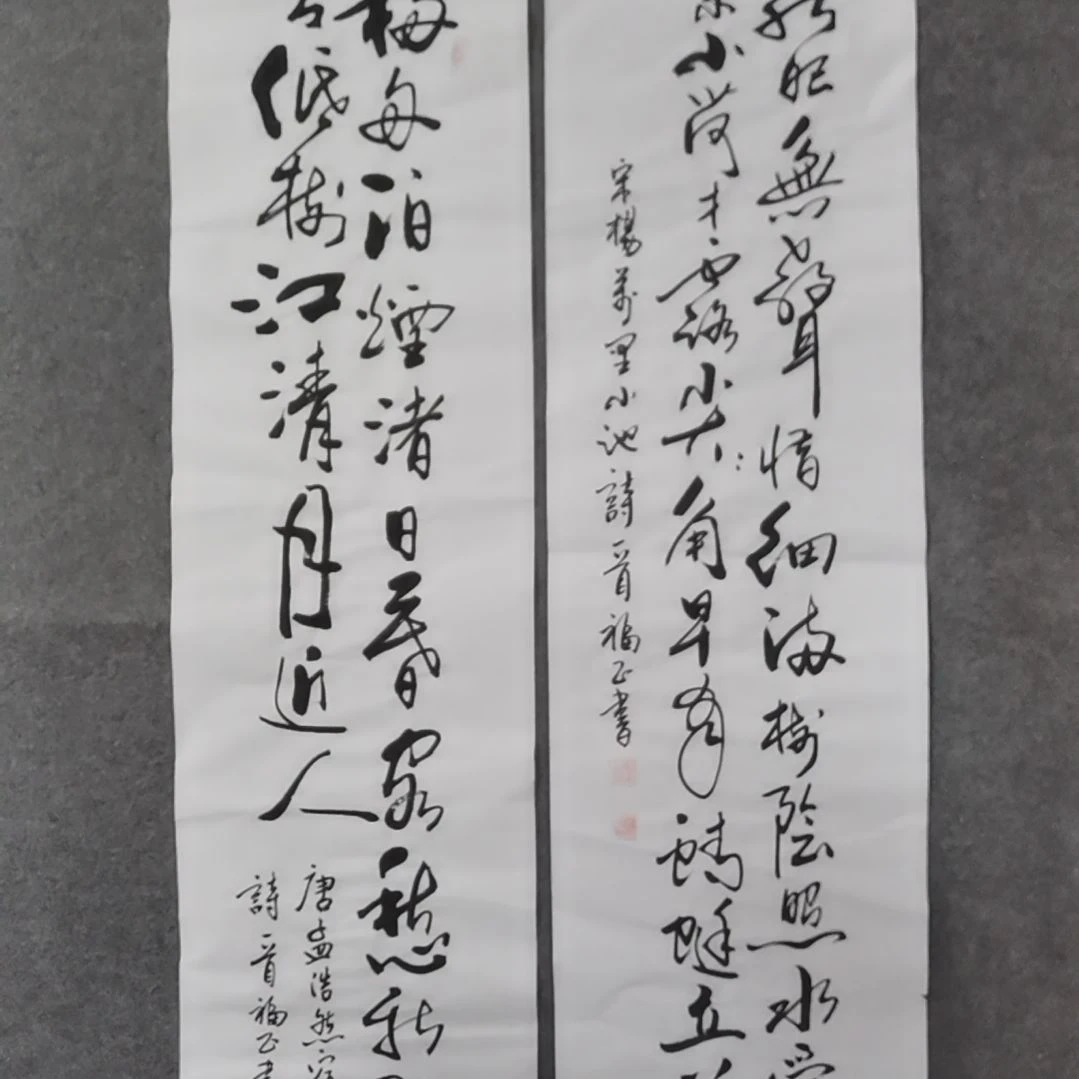 眼無聲惜細流樹陰照水
小荷才露尖:角早有蜻蜓立
宋楊萬里小池詩一首福正書
移舟泊煙渚日暮客愁新
低樹江清月近人
唐孟浩然宿
詩一首福正書